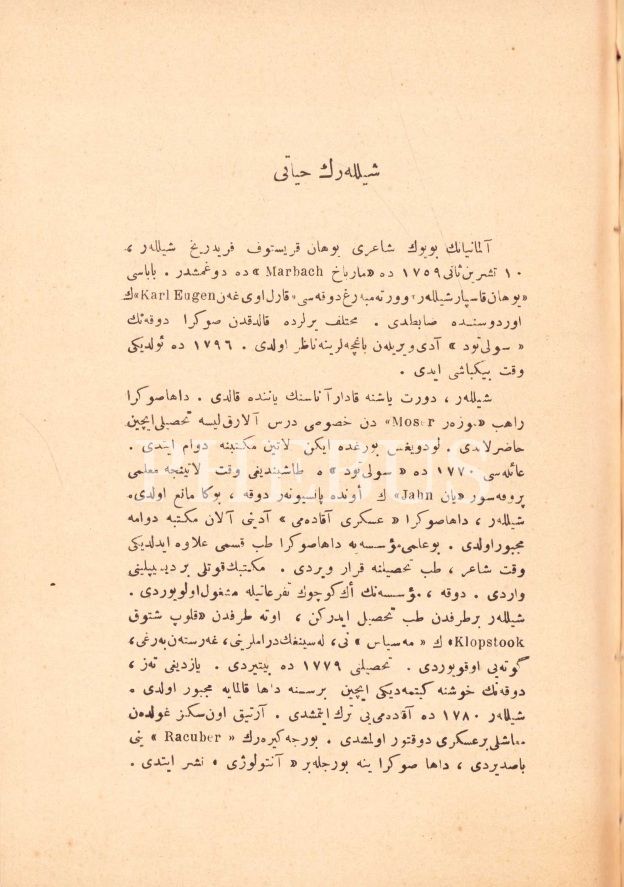 شیللەرك حیاتی
آلمانیانك بویوك شاعری یوهان قریستوف فریدریخ شیللەر ،
۱۰ تشرین ثانی ۱۷۵۹ ده «مارباخ Marbach» ده دوغمشدر . باباسی
«یوهان قاسپار شیللەر» وورتەمبەرغ دوقەسی «قارل اوی غەن Karl Eugen» ك
اوردوسنده ضابطدی . مختلف یرلرده قالدقدن صوكرا دوقەنك
« سولی تود » آدی ویریلەن باغچەلرینە ناظر اولدی . ۱۷۹٦ ده ئولدیكی
وقت بیكباشی ایدی .
شیللەر ، دورت یاشنە قادار آناسنك یاننده قالدی . داها صوكرا
راهب «موزەر Moser» دن خصوصی درس آلارق لیسە تحصیلی ایچین
حاضرلاندی . لودویغس بورغده ایكن لاتین مكتبینە دوام ایتدی .
عائلەسی ۱۷۷۰ ده « سولی تود » ه طاشیندیغی وقت لاتینجە معلمی
پروفەسور «یان Jahn» ك أونده پانسیونەر دوقە ، بوكا مانع اولدی .
شیللەر ، داها صوكرا « عسكری آقادەمی » آدینی آلان مكتبە دوامە
مجبور اولدی . بو علمی مؤسسەیە داها صوكرا طب قسمی علاوه ایدلدیكی
وقت شاعر ، طب تحصیلنە قرار ویردی . مكتبك قوتلی بر دیسیپلینی
واردی . دوقە ، مؤسسەنك أك كوچوك تفرعاتیلە مشغول اولویوردی .
شیللەر بر طرفدن طب تحصیل ایدركن ، اوتە طرفدن «قلوپ شتوق
Klopstook» ك « مەسیاس » نی ، لەسینغك درام لرینی ، غەرستەن بەرغی ،
گوتەیی اوقویوردی . تحصیلنی ۱۷۷۹ ده بیتیردی . یازدیغی تەز ،
دوقەنك خوشنە كیتمەدیكی ایچین برسنە داها قالمایە مجبور اولدی .
شیللەر ۱۷۸۰ ده آقادەمی یی ترك ایتمشدی . آرتیق اون سكز غولدەن
معاشلی بر عسكری دوقتور اولمشدی . بورجە كیرەرك « Racuber » یی
باصدیردی ، داها صوكرا ینە بورجلە بر « آنتولوژی » نشر ایتدی .
PHEBUS